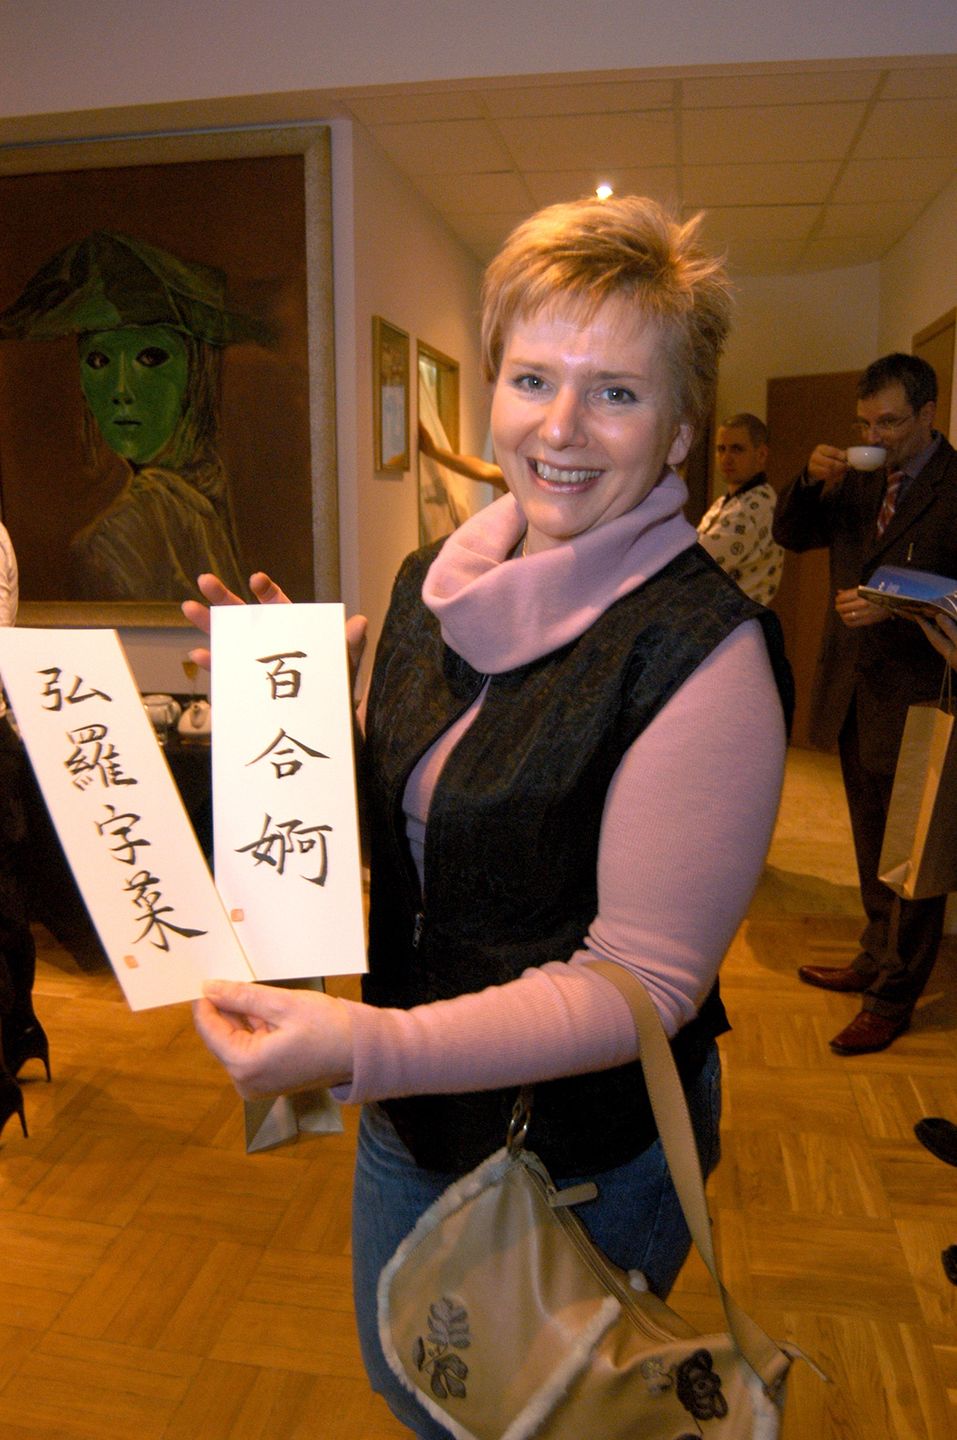 弘羅字菜
百合婀